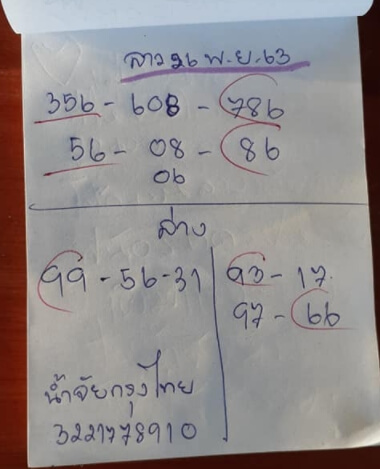 ลาว 26 พ.ย. 63
356 - 608 - 786
56 - 08 - 86
06
ล่าง
99 - 56 - 31
93 - 17
97 - 66
น้ำจัยกรุงไทย
3221778910